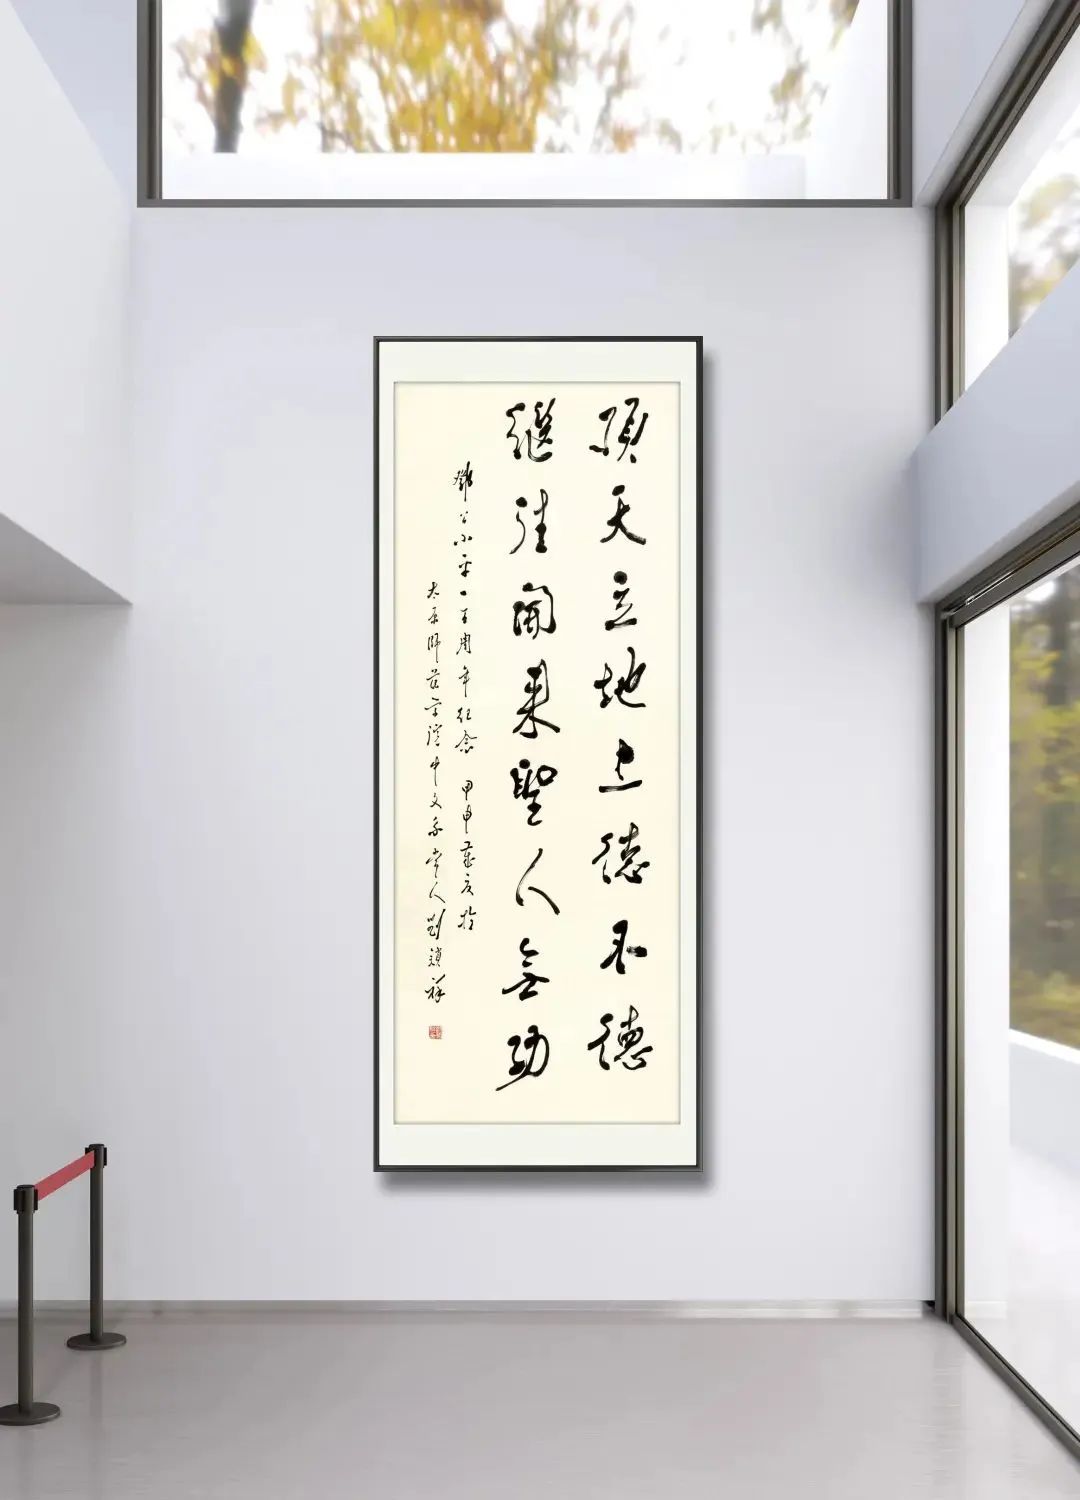 頂天立地上德不德
繼往開來聖人無功
鄧公小平一百周年紀念 甲申歲夏於
太原師範學院中文系 劉鎖祥